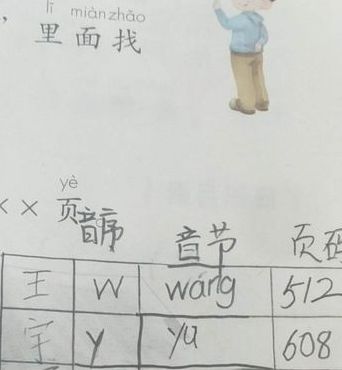 lǐ miànzhǎo
，里面找
yè
××页音序 音节 页码
王 W wáng 512
宇 y yu 608